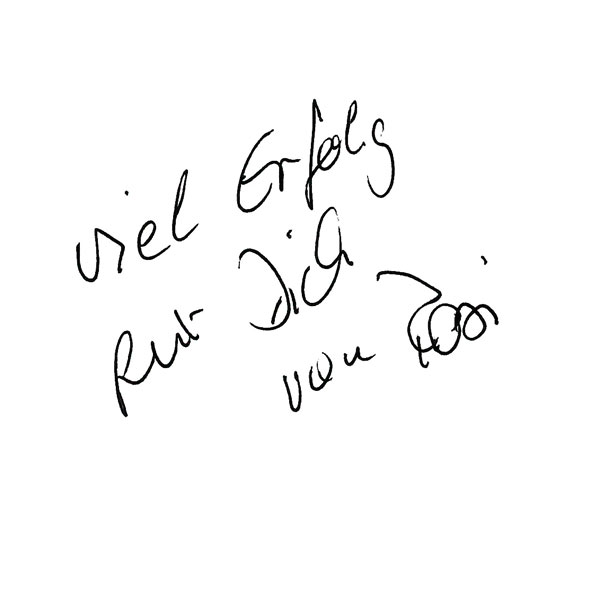 viel Erfolg
für Dich
von Rosi